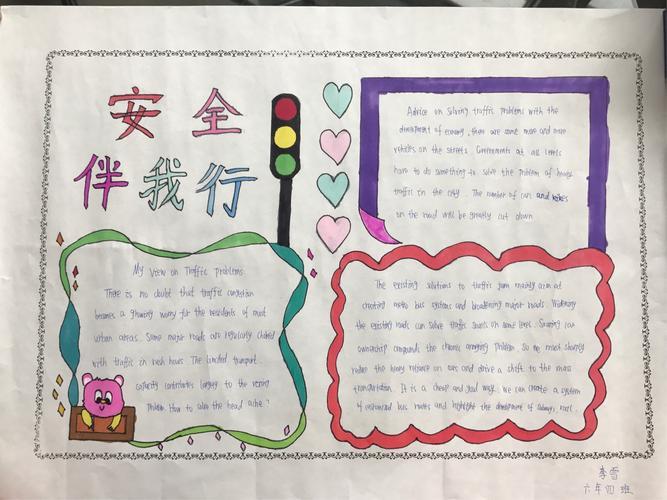 安全
伴我行
Advice on Solving traffic problems with the
development of economy, there are some more and more
vehicles on the streets. Governments at all levels
have to do something to solve the problem of heavy
traffic in the city. The number of cars and bikes
on the road will be greatly cut down
My View on Traffic problems
There is no doubt that traffic congestion
becomes a growing worry for the residents of most
urban areas. Some major roads are regularly choked
with traffic in rush hours The limited transport
capacity contributes largely to the
Problem. How to solve the head ache?
The existing solutions to traffic jam mainly aim at
creating metro bus systems and broadening major roads. Widening
the existing roads can solve traffic on some
ownership compounds the chronic problem. So we must sharply
reduce the heavy reliance on cars and drive a shift to the mass
transportation. It is a cheap and way. We can create a system
of bus routes and highlight the development of subway,
李雪
六年四班